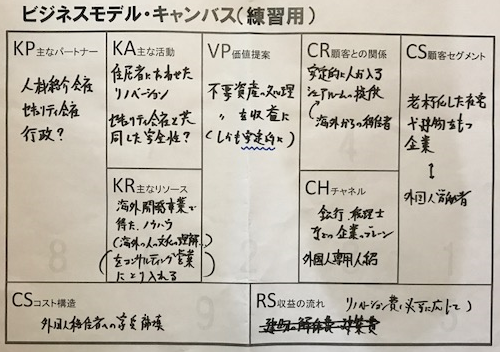 ビジネスモデル・キャンバス(練習用)
KP主なパートナー
人材紹介会社
セキュリティ会社
行政?
KA主な活動
住民に合わせた
リノベーション
セキュリティ会社と共
同した安全性?
KR主なリソース
海外関係事業で
得た、ノウハウ
(海外の人の文化の理解...
をコンサルティング営業
にとり入れる
VP価値提案
不要資産の処理
〃を収益に
(しかも安定的に)
CR顧客との関係
安定的に人が入る
シェアルームの提供
海外からの移住者
CHチャネル
銀行、税理士
などの企業のブレーン
外国人専用人紹
CS顧客セグメント
老朽化した社宅
や建物をもつ
企業
↕
外国人
8
2
4
1
CSコスト構造
外国人移住者への
9
RS収益の流れ
リノベーション費(必要に応じて)